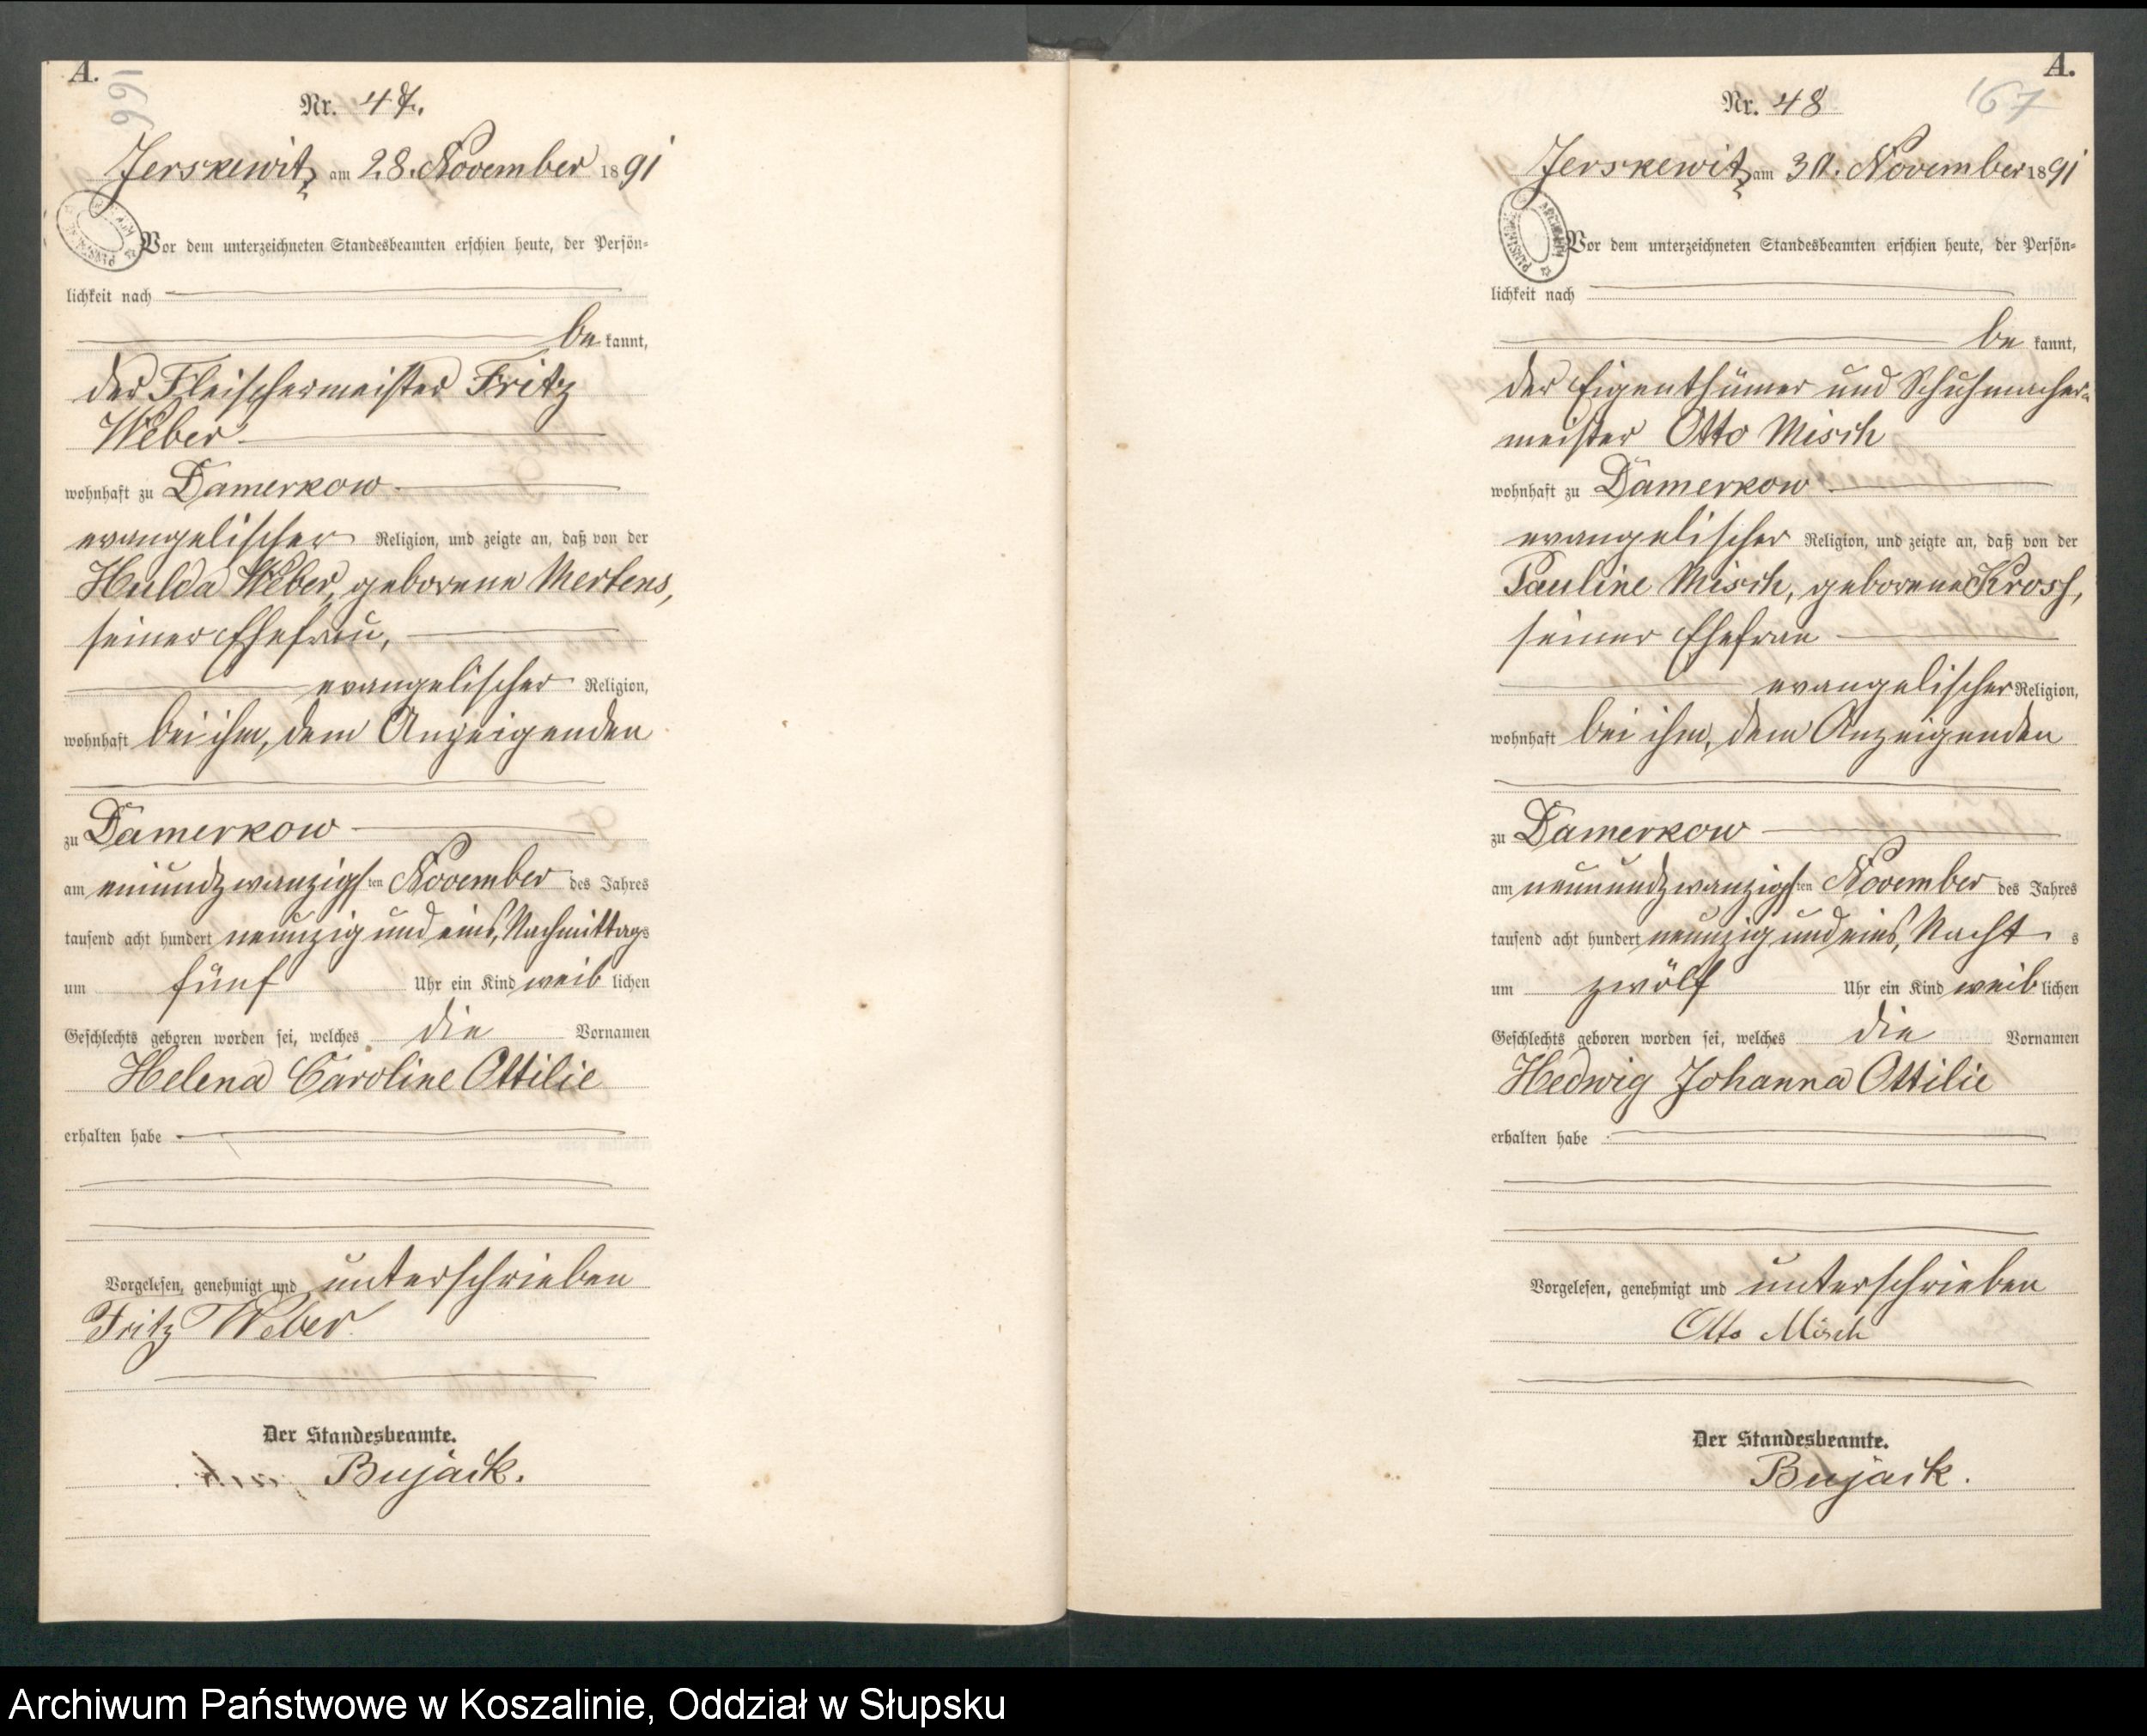 A.
166
Nr. 47.
Jerskewitz am 28. November 1891
Vor dem unterzeichneten Standesbeamten erschien heute, der Persön-
lichkeit nach
be kannt,
der Fleischermeister Fritz
Weber
wohnhaft zu Damerkow
evangelischer Religion, und zeigte an, daß von der
Hulda Weber, geborene Mertens,
seiner Ehefrau,
evangelischer Religion,
wohnhaft bei ihm, dem Anzeigenden
zu Damerkow
am einundzwanzigsten November des Jahres
tausend acht hundert neunzig und eins, Nachmittags
um fünf Uhr ein Kind weiblichen
Geschlechts geboren worden sei, welches die Vornamen
Helena Caroline Ottilie
erhalten habe
Vorgelesen, genehmigt und unterschrieben
Fritz Weber
Der Standesbeamte.
Bujack.
A.
167
Nr. 48
Jerskewitz am 30. November 1891
Vor dem unterzeichneten Standesbeamten erschien heute, der Persön-
lichkeit nach
be kannt,
der Eigenthümer und Schuhmacher-
meister Otto Misch
wohnhaft zu Damerkow
evangelischer Religion, und zeigte an, daß von der
Pauline Misch, geborene Krosch,
seiner Ehefrau
evangelischer Religion,
wohnhaft bei ihm, dem Anzeigenden
zu Damerkow
am neunundzwanzigsten November des Jahres
tausend acht hundert neunzig und eins, Nachts
um zwölf Uhr ein Kind weiblichen
Geschlechts geboren worden sei, welches die Vornamen
Hedwig Johanna Ottilie
erhalten habe
Vorgelesen, genehmigt und unterschrieben
Otto Misch
Der Standesbeamte.
Bujack.
Archiwum Państwowe w Koszalinie, Oddział w Słupsku